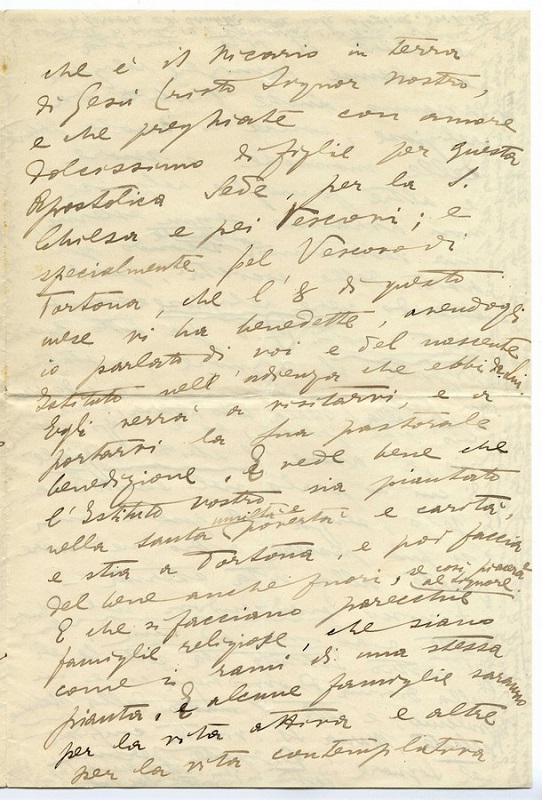 che è il Vicario in terra
di Gesù Cristo Signor Nostro,
e che preghiate con amore
dolcissimo di figlie per questa
Apostolica Sede, per la S.
Chiesa e pei Vescovi; e
specialmente pel Vescovo di
Tortona, che l'8 di questo
mese vi ha benedette, avendogli
io parlato di voi e del nascente
Istituto nell'udienza che ebbi da lui.
Egli verrà a visitarvi, e a
portarvi la sua pastorale
benedizione. E vede bene che
l'Istituto vostro sia piantato
nella santa umiltà e povertà e carità,
e stia a Tortona, e poi faccia
del bene anche fuori, se così piacerà al Signore.
E che si facciano parecchie
famiglie religiose, che siano
come i rami di una stessa
pianta. E alcune famiglie saranno
per la vita attiva e altre
per la vita contemplativa